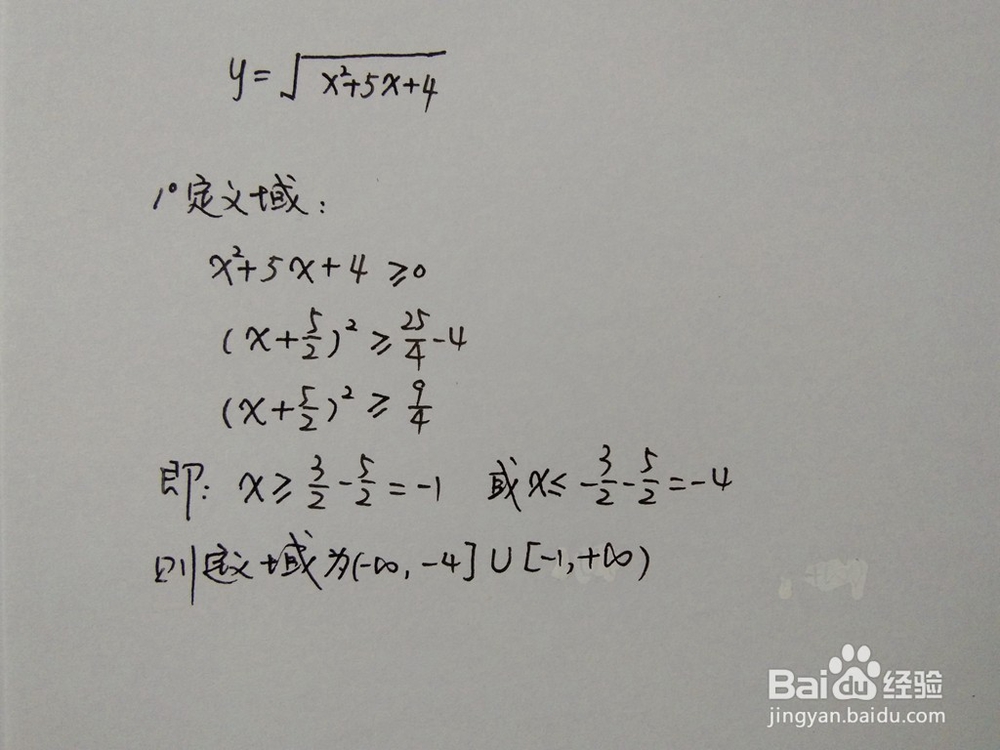 y=√x²+5x+4
1° 定义域:
x²+5x+4≥0
(x+5/2)²≥25/4-4
(x+5/2)²≥9/4
即: x≥3/2-5/2=-1 或x≤-3/2-5/2=-4
则定义域为(-∞,-4]∪[-1,+∞)
Baidu经验
jingyan.baidu.com